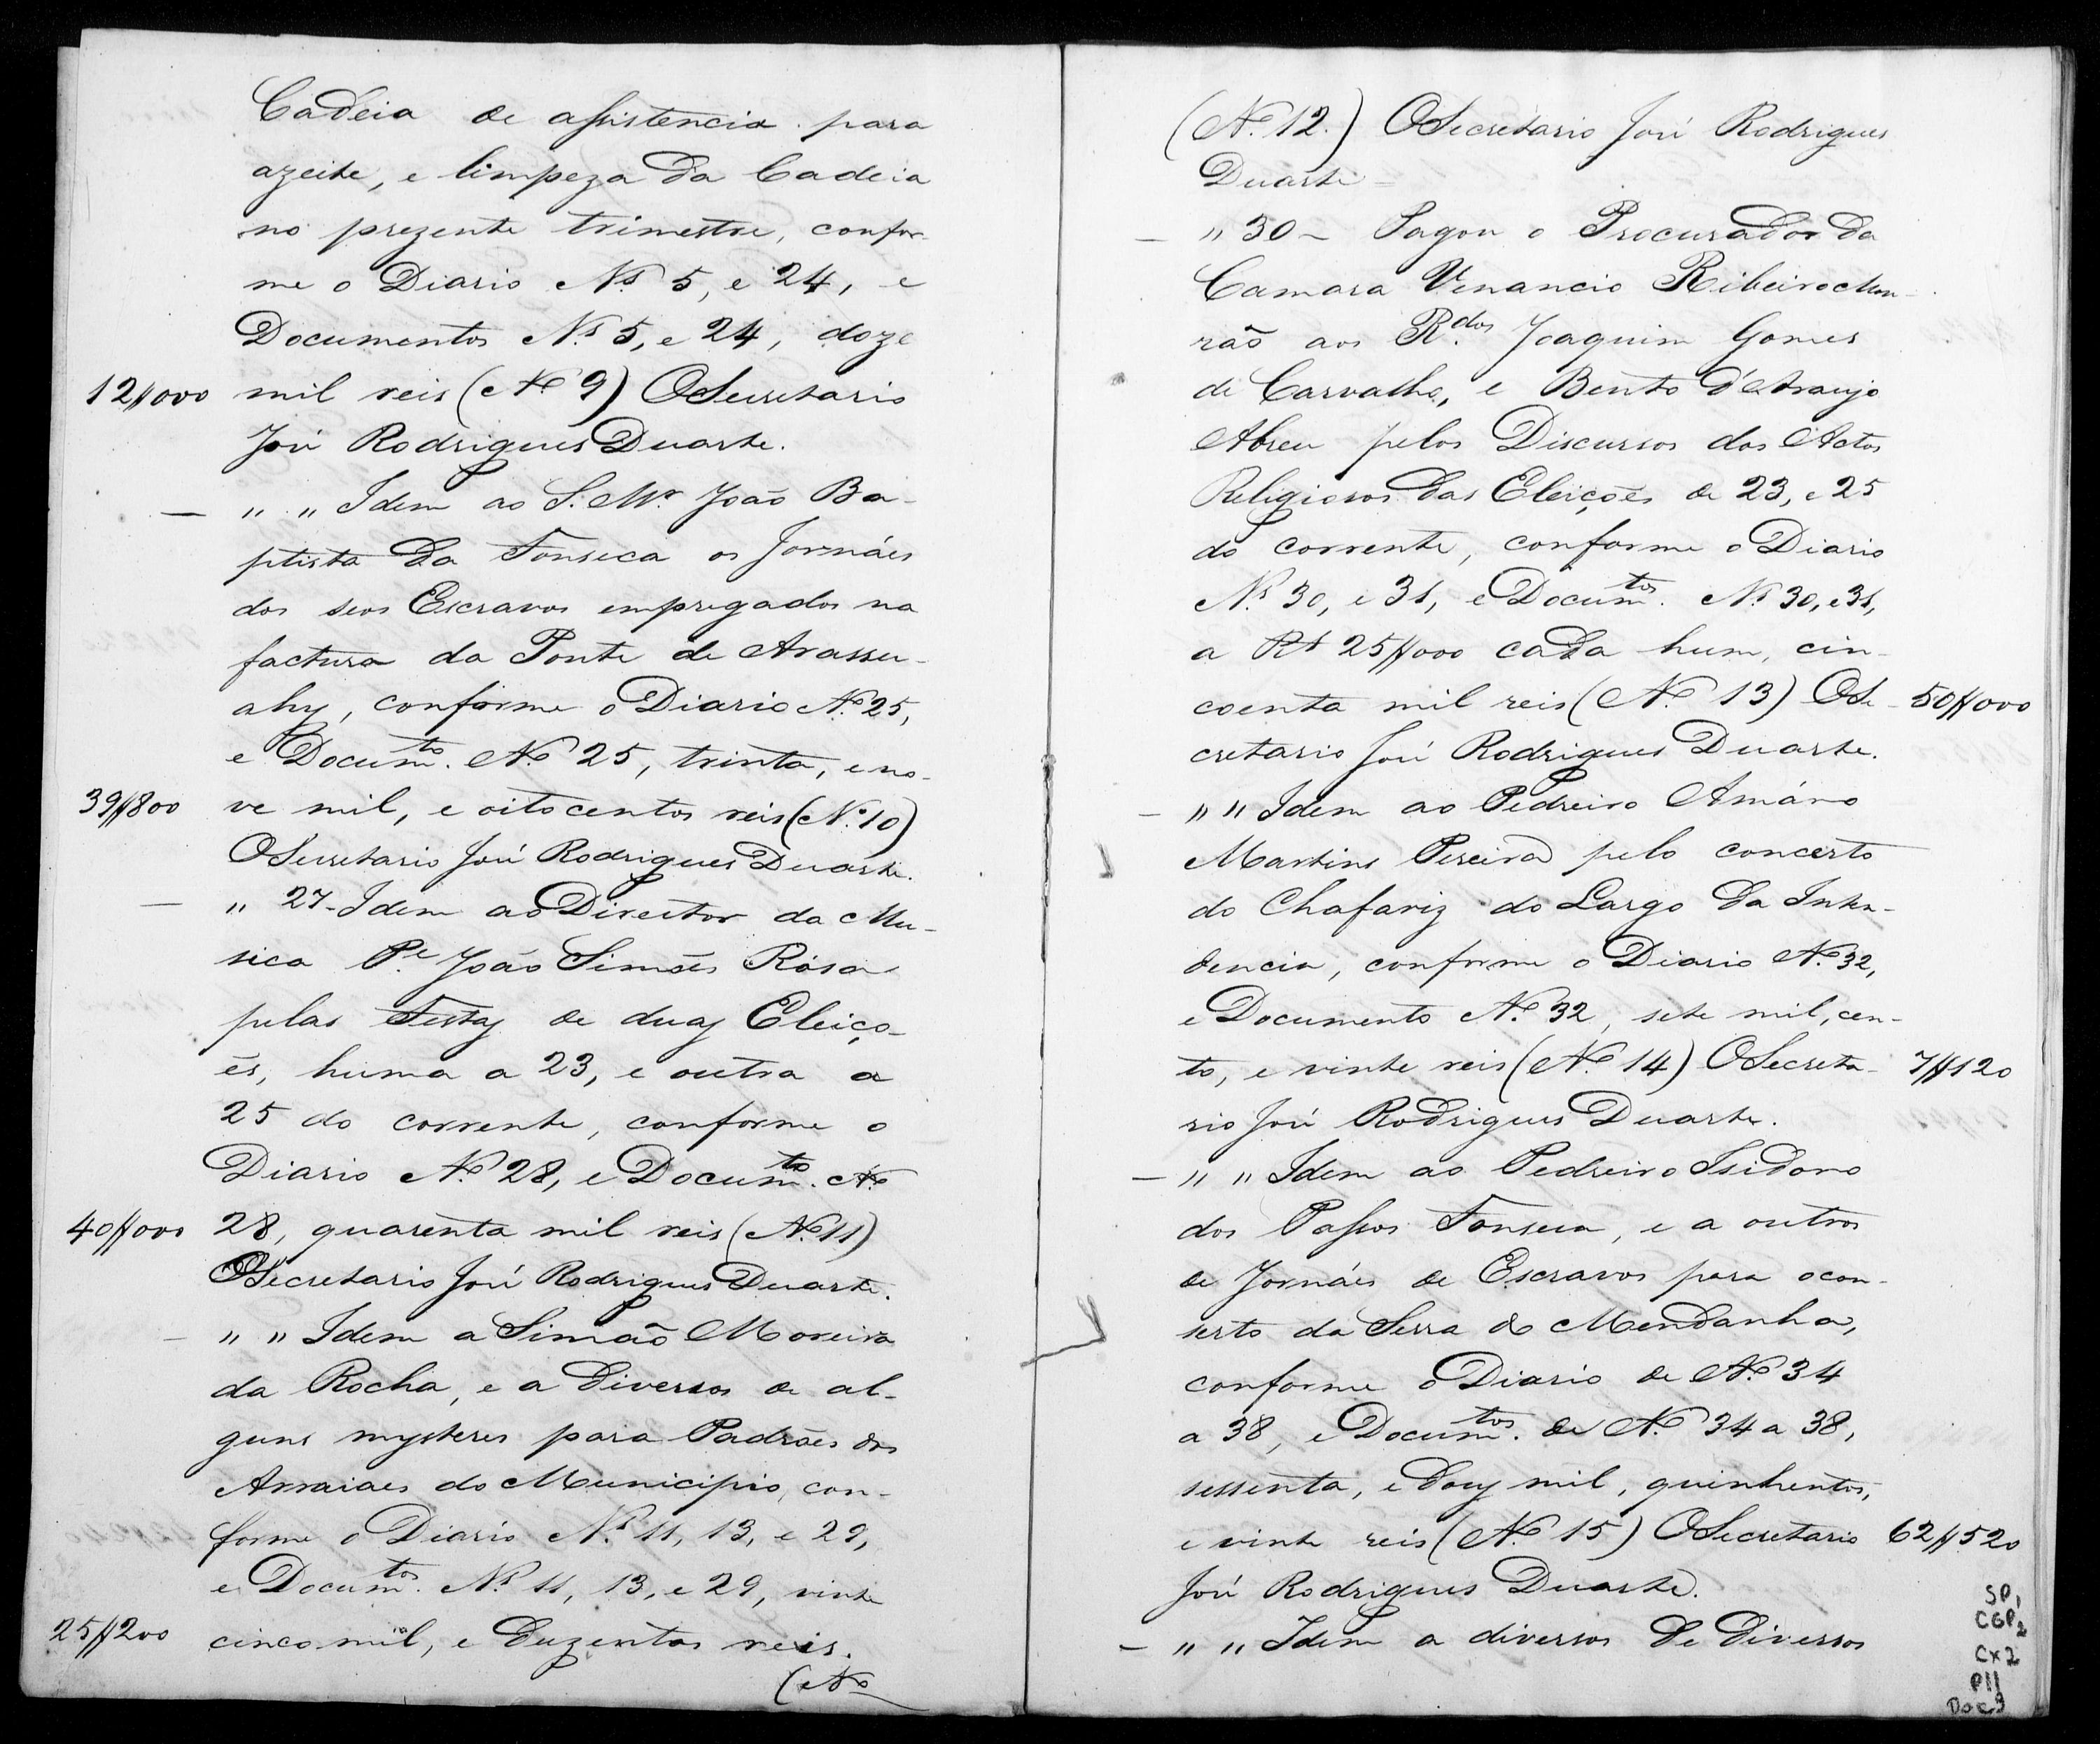 Cadeia de assistencia para
azeite, e limpeza da Cadeia
no prezente trimestre, confor-
me o Diario Nos 5, e 24, e
Documentos Nos 5, e 24, doze
12$000 mil reis (No 9) O Secretario
José Rodrigues Duarte.
— " " Idem ao S. Mr João Ba-
ptista da Fonseca os Jornáes
dos seos Escravos empregados na
factura da Ponte de Arassu-
ahy, conforme o Diario No 25,
e Documto. No 25, trinta, e no-
39$800 ve mil, e oitocentos reis (No 10)
O Secretario José Rodrigues Duarte.
— " 27 - Idem ao Director da Mu-
sica Pe João Simões Rósa
pelas Festas de duas Eleiço-
ẽs, huma a 23, e outra a
25 do corrente, conforme o
Diario No 28, e Documto. No
40$000 28, quarenta mil reis (No 11)
O Secretario José Rodrigues Duarte.
— " " Idem a Simão Moreira
da Rocha, e a diversos de al-
guns mysteres para Padrões dos
Arraiaes do Municipio, con-
forme o Diario Nos 11, 13, e 29,
e Documtos. Nos 11, 13, e 29, vinte
25$200 cinco mil, e duzentos reis.
(No
(No 12.) O Secretario José Rodrigues
Duarte -
— " 30 - Pagou o Procurador da
Camara Venancio Ribeiro Mou-
rão aos Rdos. Joaquim Gomes
de Carvalho, e Bento d'Araujo
Abreu pelos Discursos dos Actos
Religiosos das Eleições de 23, e 25
do corrente, conforme o Diario
Nos 30, e 31, e Documtos. Nos 30, e 31,
a Rs 25$000 cada hum, cin-
coenta mil reis (No 13) O Se- 50$000
cretario José Rodrigues Duarte.
— " " Idem ao Pedreiro Amáro
Martins Pereira pelo concerto
do Chafariz do Largo da Inten-
dencia, conforme o Diario No 32,
e Documento No 32, sete mil, cen-
to, e vinte reis (No 14) O Secreta- 7$120
rio José Rodrigues Duarte.
— " " Idem ao Pedreiro Isidoro
dos Passos Fonseca, e a outros
de Jornáes de Escravos para o con-
serto da Serra do Mendanha,
conforme o Diario de No 34
a 38, e Documtos. de No 34 a 38,
sessenta, e dous mil, quinhentos,
e vinte reis (No 15) O Secretario 62$520
José Rodrigues Duarte.
— " " Idem a diversos de diversos
SP1
CGP2
Cx2
P11
Doc9